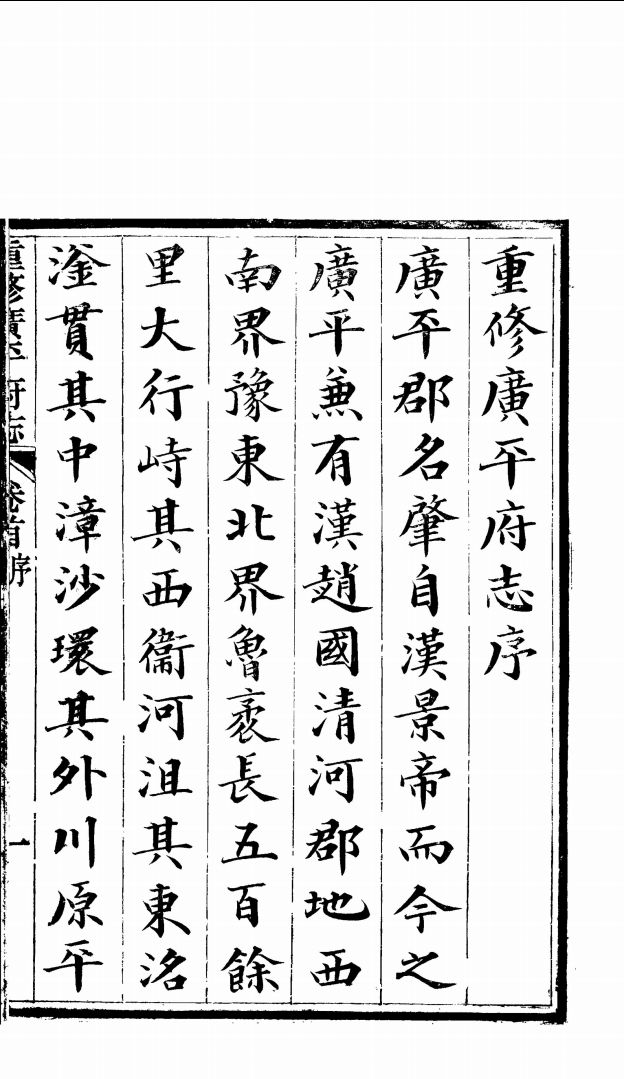 重修廣平府志序
廣平郡名肇自漢景帝而今之
廣平兼有漢趙國清河郡地西
南界豫東北界魯袤長五百餘
里大行峙其西衞河沮其東洺
滏貫其中漳沙環其外川原平
重修廣平府志 卷首 序 一